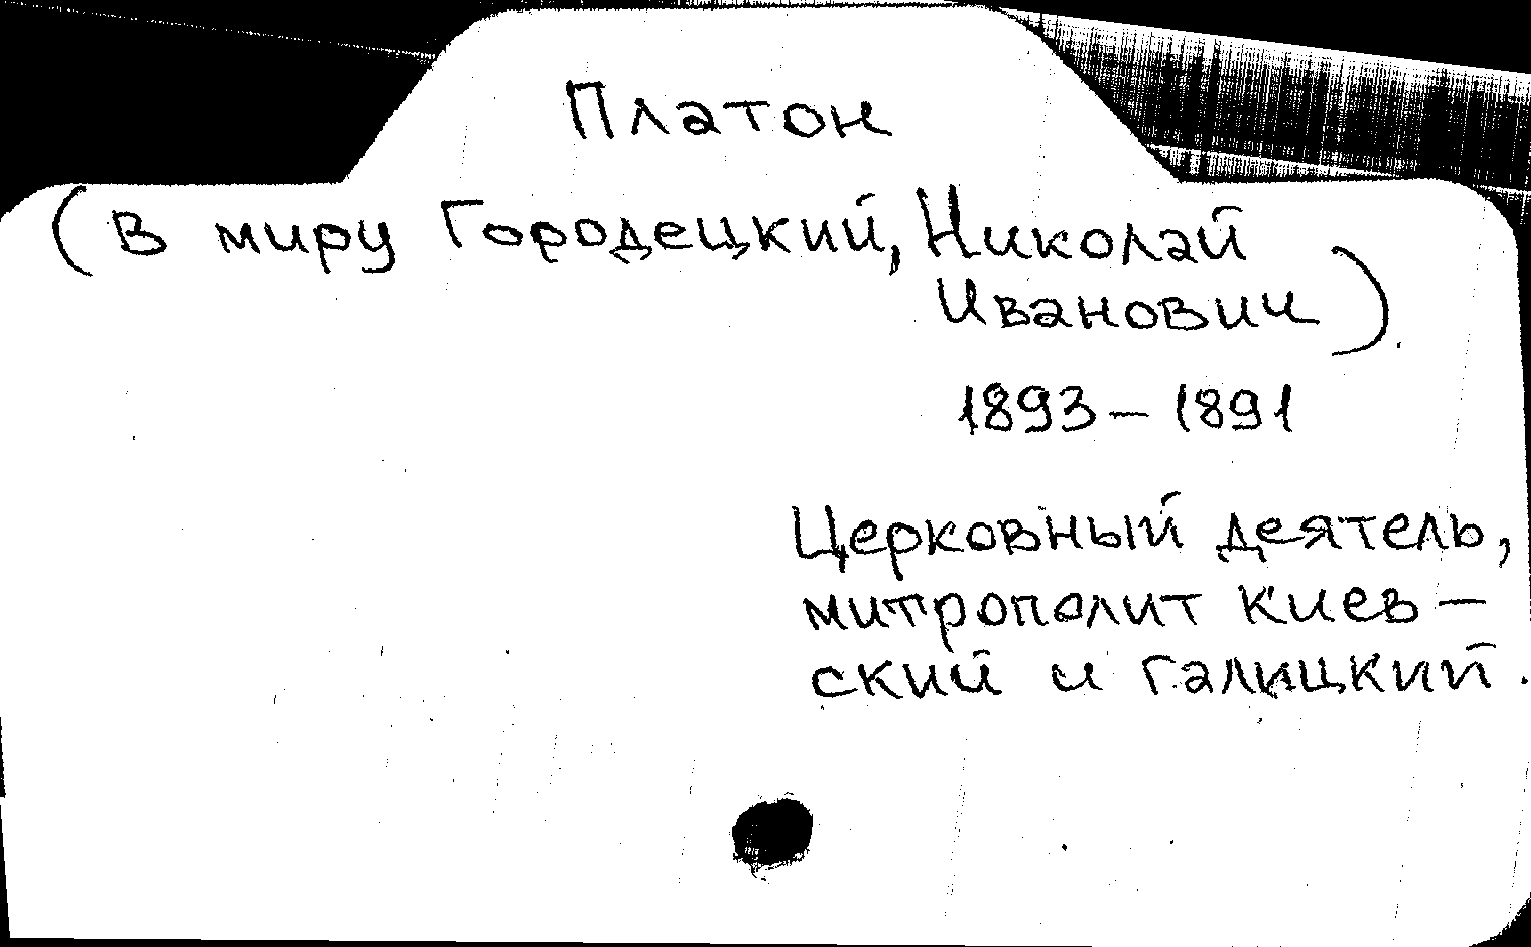 Платон
(в миру Городецкий, Николай
Иванович)
1893 – 1891
Церковный деятель,
митрополит Киев –
ский и Галицкий.